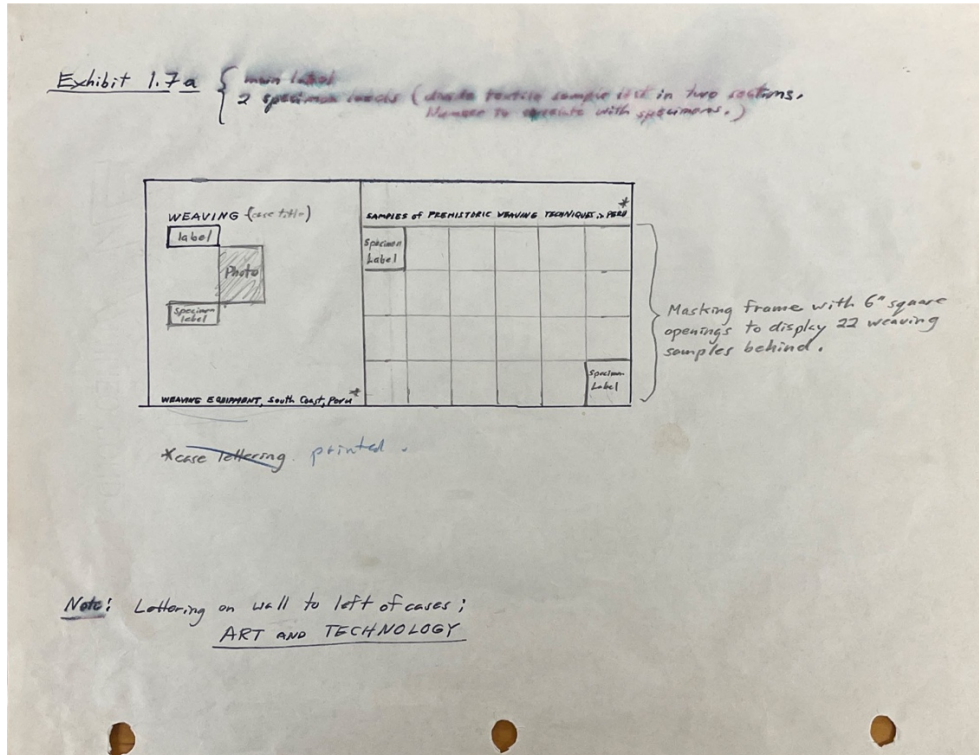 Exhibit 1.7a
main label
2 specimen labels (divide textile sample list in two sections.
Number to correlate with specimens.)
WEAVING (case title)
label
Photo
Specimen
label
WEAVING EQUIPMENT, South Coast, Peru *
*
SAMPLES of PREHISTORIC WEAVING TECHNIQUES, PERU
Specimen
Label
Specimen
Label
Masking frame with 6" square
openings to display 22 weaving
samples behind.
*case lettering. printed.
Note: Lettering on wall to left of cases;
ART AND TECHNOLOGY